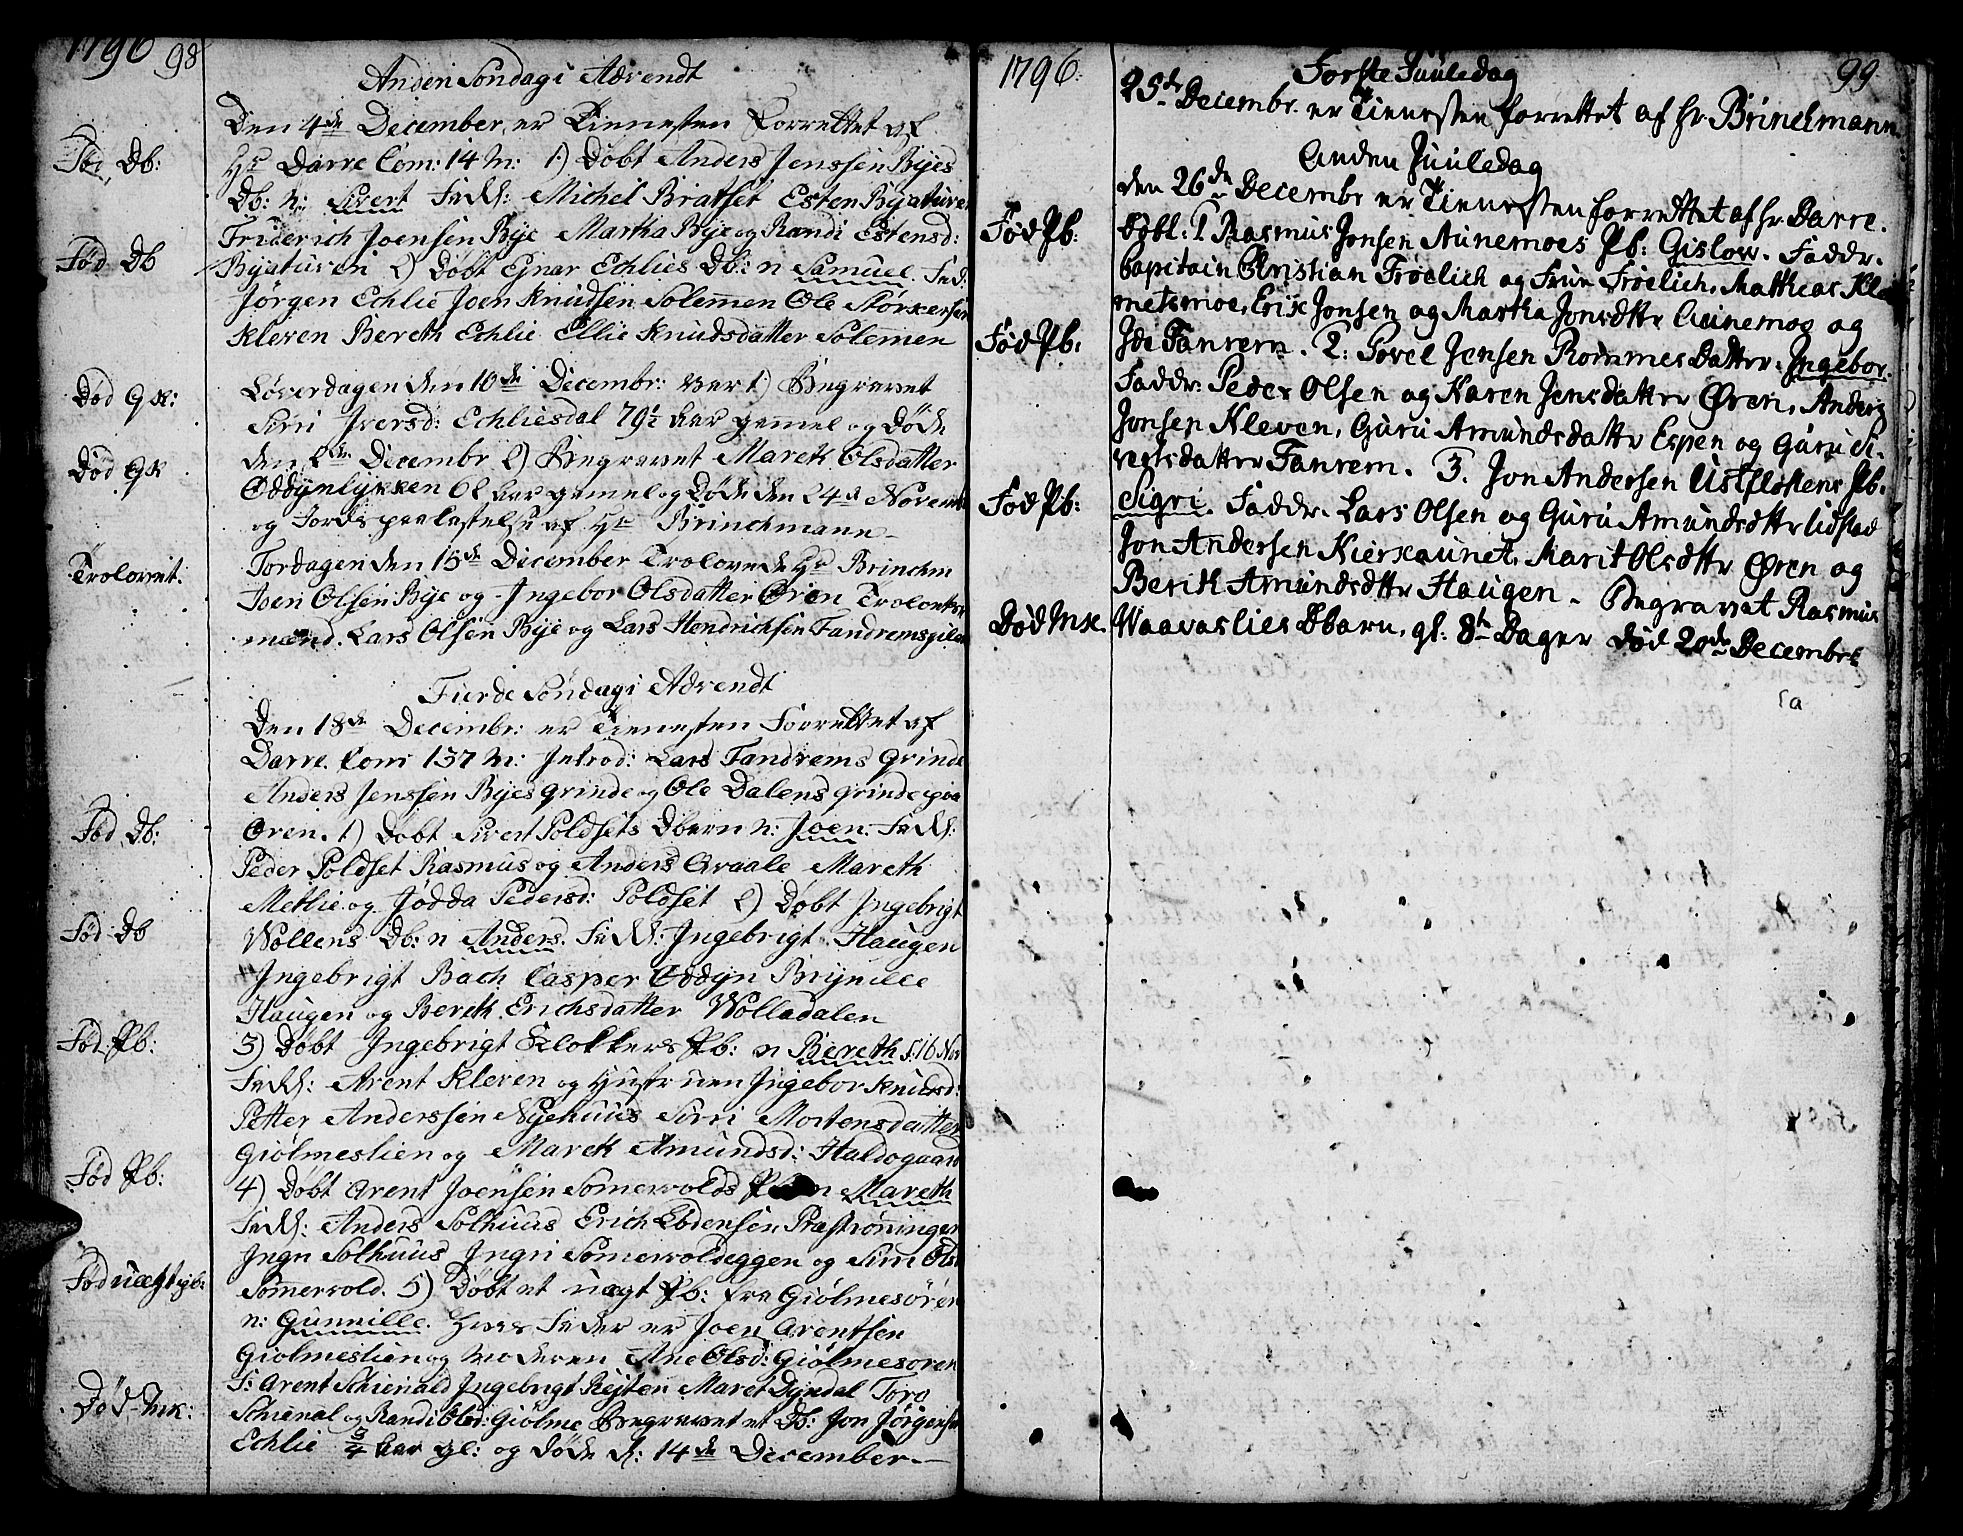 1796 98
Anden Søndag i Advendt
Den 4de December er Tienesten Forrettet af
Fød Db: Hr Darre Com: 14 M: 1) Døbt Anders Jenssen Byes
Db: n: Sivert Fadd: Michel Bratset Esten Byatuven
Friderich Joensen Bye Martha Bye og Randi Estensd:
Fød Db Byatuven 2) Døbt Ejnar Echlies Db: n Samuel. Fad:
Jørgen Echlie Joen Knudsen Solemen Ole Størkersen
Kleven Bereth Echlie Ellie Knudsdatter Solemen
Død Q K: Løverdagen den 10de Decembr: var 1) Begravet
Siri Iversd: Echliesdal 79½ Aar gammel og døde
Død Q K den 2de Decembr 2) Begravet Mareth Olsdatter
Oddynlykken 62 Aar gamel og Døde den 24de Novemb
og Jords paakastelse af Hr Brinchmann
Trolovet. Tordagen den 15de December Trolovede Hr Brinchm
Joen Olsen Bye og Ingebor Olsdatter Øren Trolovelses
mænd. Lars Olsen Bye og Lars Hendrichsen Fandremsgilen
Fierde Søndag i Advendt
Den 18de Decembr: er Tienesten Forrettet af
Darre. Com 137 M: Introd: Lars Fandrems Qvinde
Anders Jenssen Byes qvinde og Ole Dalens qvinde paa
Fød Db: Øren. 1) Døbt Sivert Poldsets Dbarn n: Joen: Fadd:
Peder Poldset Rasmus og Anders Qvaale Mareth
Metlie og Jødda Pedersd: Poldset 2) Døbt Ingebrigt
Fød Db Wollens Db: n Anders. Fadd: Ingebrigt Haugen
Ingebrigt Bach Casper Oddyn Brynille
Haugen og Bereth Erichsdatter Wolladalen
Fød Pb: 3) Døbt Ingebrigt Klokkers Pb: n Bereth f: 16 Nov
Fadd: Arent Kleven og Hustruen Ingebor Knudsd:
Petter Anderssen Nyehuus Siri Mortensdatter
Giølmeslien og Mareth Amundsd: Haldogaard
Fød Pb: 4) Døbt Arent Joensen Somervolds Mareth
Fadd: Anders Solhuus Erich Lodensen Præstrønningen
Ingri Solhuus Ingri Somervoldeggen og Siri Ols
Fød uægt Pb: Somervold. 5) Døbt et uægt Pb: fra Giølmesøren
n: Gunnille. Hvis Fader er Joen Arentsen
Giølmeslien og Moderen Ane Olsd: Giølmesøren
F: Arent Schienald Ingebrigt Rejten Maret Dyndal Toro
Død MK: Schienal og Randi Olsd: Giølme Begravet et Db: Jon Jørgensen
Echlie ¾ Aar gl: og døde d: 14de December.
1796. 99
Første Juuledag
25de Decembr. er Tienesten forrettet af hr. Brinchmann.
Anden Juuledag
den 26de Decembr er Tienesten forrettet af hr. Darre.
Fød Pb: Døbt: 1. Rasmus Jonsen Aunemoes Pb: Gislow. Faddr.
Capitain Christian Frøelich og Frue Frøelich, Matthias Kle
metsmoe, Erik Jonsen og Martha Jonsdttr Aunemoe og
Fød Pb: Ide Fanrem. 2: Povel Jensen Rommes Datter. Ingebor.
Faddr: Peder Olsen og Karen Jensdatter Øren, Anders
Jonsen Kleven, Guru Amundsdattr Espen og Guru Si-
vertsdatter Fanrem. 3. Jon Andersen Ustfløkens Pb:
Fød Pb: Sigri. Faddr. Lars Olsen og Guru Amundsdttr Lidstad
Jon Andersen Kierkaunet, Marit Olsdttr Øren og
Berith Amundsdttr Haugen. Begravet Rasmus
Død MK. Waavaslies Dbarn, gl: 8te Dager død 20de Decembr